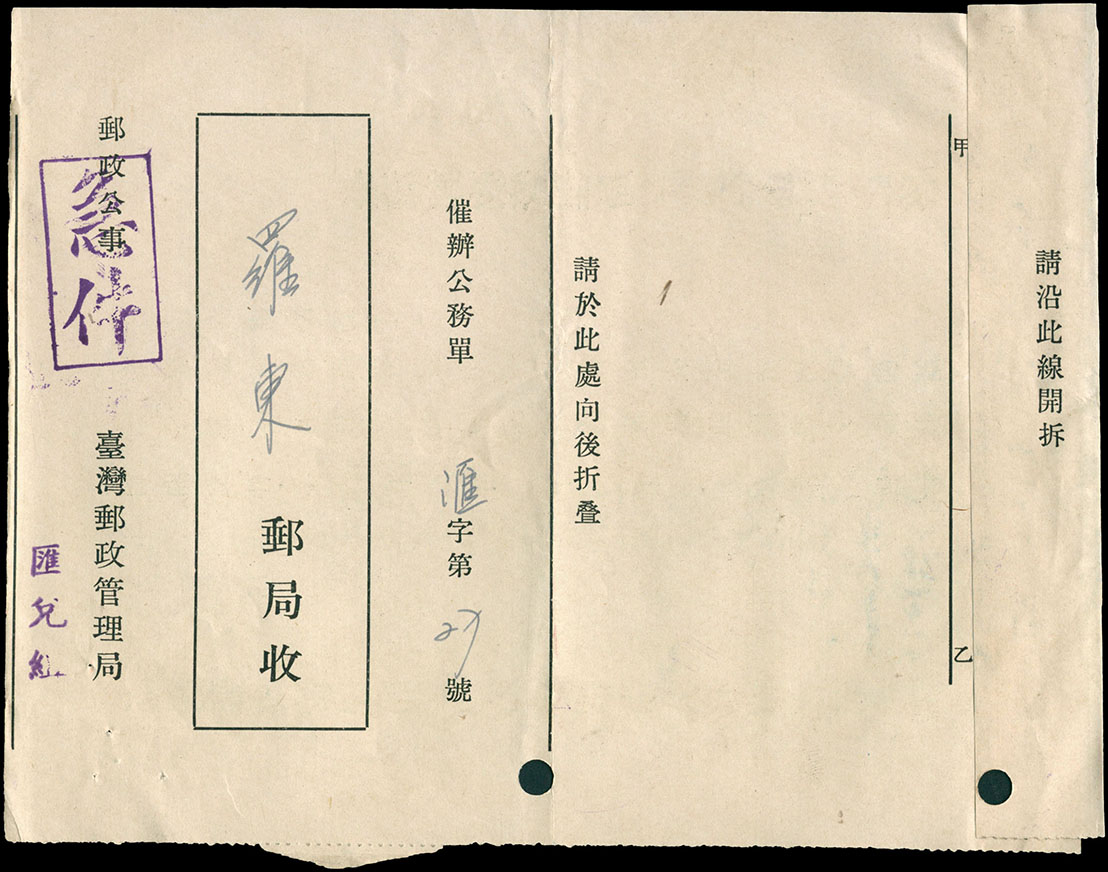 請沿此線開拆
甲 乙
請於此處向後折叠
催辦公務單 滙字第 號
羅東 郵局收
郵政公事 臺灣郵政管理局
急件
匯兌組